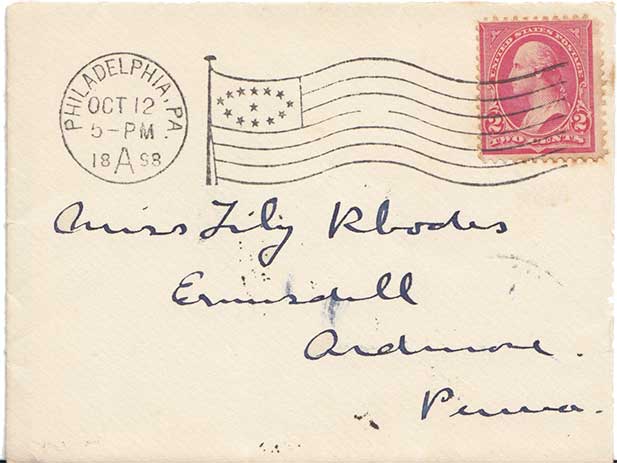 PHILADELPHIA, PA.
OCT 12
5-PM
18 A 98
UNITED STATES POSTAGE
2 2
TWO CENTS
Miss Lily Rhodes
Ermisdell
Ardmore.
Penna.